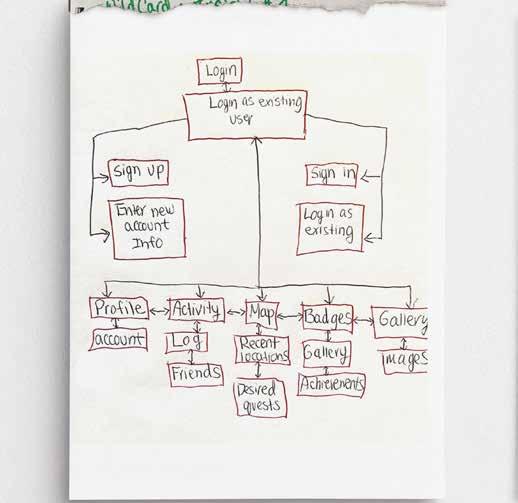 Login
Login as existing
user
Sign up
Sign in
Enter new
account
Info
Login as
existing
Profile
Activity
Map
Badges
Gallery
account
Log
Recent
locations
Gallery
images
Friends
Desired
quests
Achievements